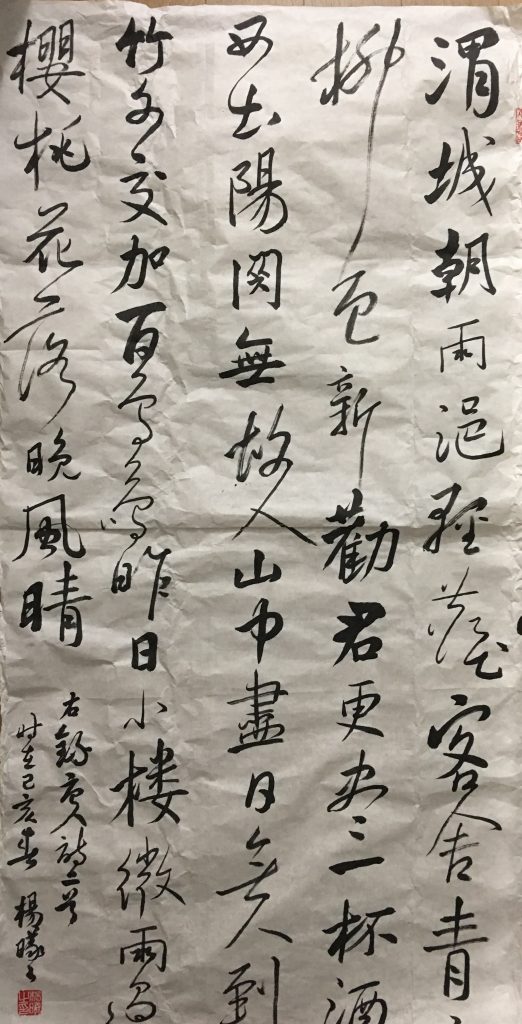 渭城朝雨浥輕塵客舍青
柳色新勸君更尽三杯酒
西出陽関無故人山中盡日無人到
竹外交加百鳥鳴昨日小楼微雨過
櫻桃花落晚風晴
右錄唐人詩二首
时在己亥春 楊曦